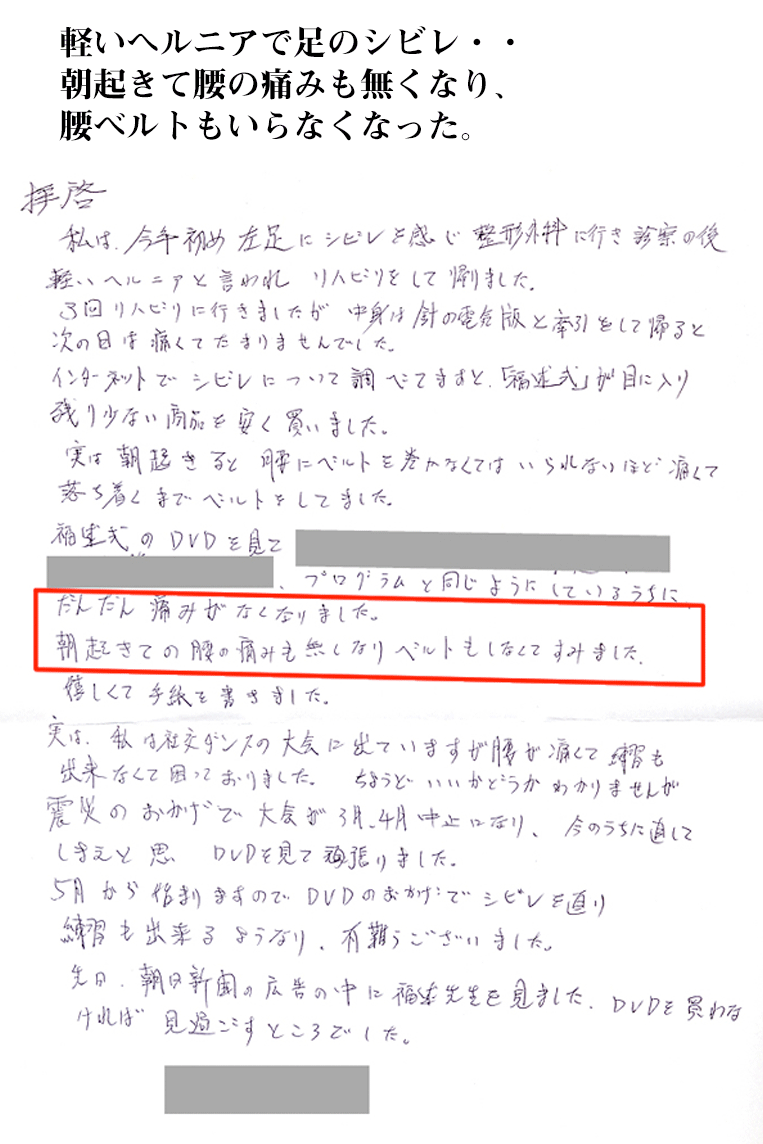 軽いヘルニアで足のシビレ・・
朝起きて腰の痛みも無くなり、
腰ベルトもいらなくなった。
拝啓
私は、今年初め左足にシビレを感じ整形外科に行き診察の後
軽いヘルニアと言われ リハビリをして帰りました。
3回リハビリに行きましたが 中身は針の電気版と牽引をして帰ると
次の日は痛くてたまりませんでした。
インターネットで シビレについて調べてますと、「福辻式」が目に入り
残り少ない商品を安く買いました。
実は朝起きると 腰にベルトを巻かなくてはいられないほど痛くて
落ち着くまでベルトをしてました。
福辻式のDVDを見て
、プログラムと同じようにしているうちに
だんだん痛みがなくなりました。
朝起きての腰の痛みも無しなりベルトもしなくてすみました。
嬉しくて手紙を書きました。
実は、私は社交ダンスの大会に出ていますが腰が痛くて練習も
出来なくて困っておりました。 ちょうどいいかどうかわかりませんが
震災のおかげで大会が3月、4月中止になり、今のうちに直して
しまえと思 DVDを見て頑張りました。
5月から始まりますのでDVDのおかげでシビレを直り
練習も出来るようなり、有難うございました。
先日、朝日新聞の広告の中に福辻先生を見ました。DVDを買わな
ければ 見過ごすところでした。